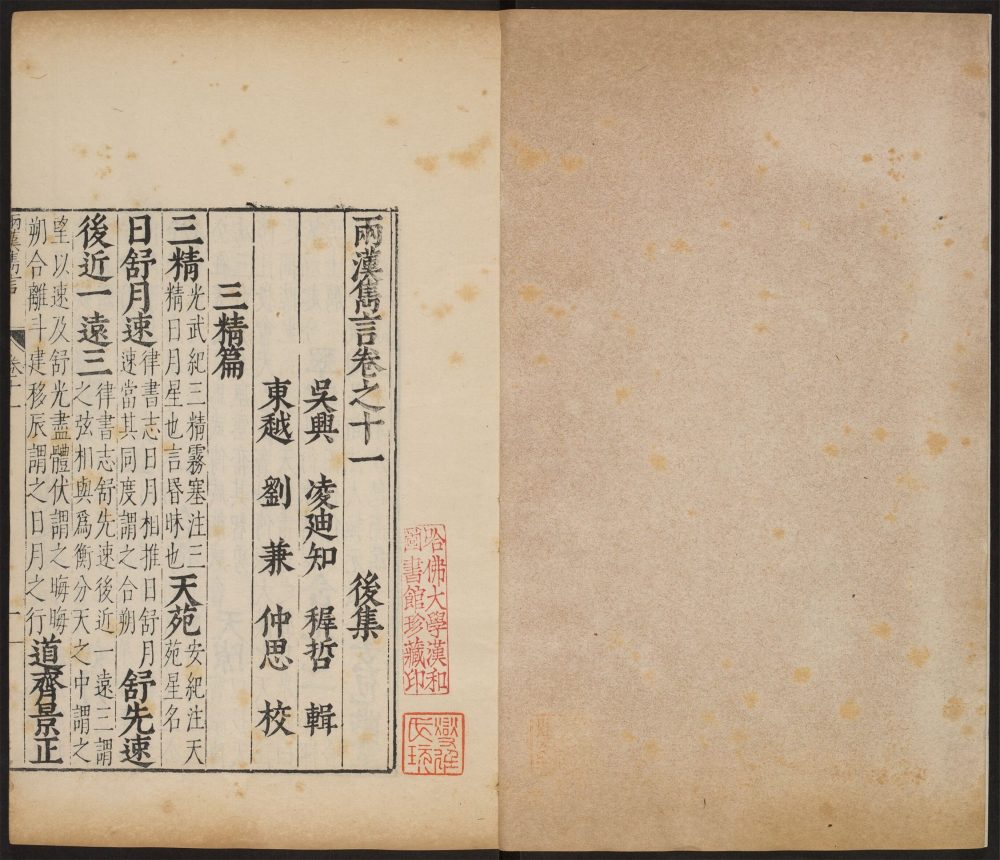 兩漢雋言卷之十一 後集
吳興 凌迪知 稺哲 輯
東越 劉兼 仲思 校
三精篇
三精 光武紀三精霧塞注三精日月星也言昏昧也 天苑 安紀注天苑星名
日舒月速 律書志日月相推日舒月速當其同度謂之合朔 舒先速
後近一遠三 律書志舒先速後近一遠三謂之弦相與爲衡分天之中謂之
望以速及舒光盡體伏謂之晦晦朔合離斗建移辰謂之日月之行 道齊景正
兩漢雋言 卷十一 一
哈佛大學漢和圖書館珍藏印